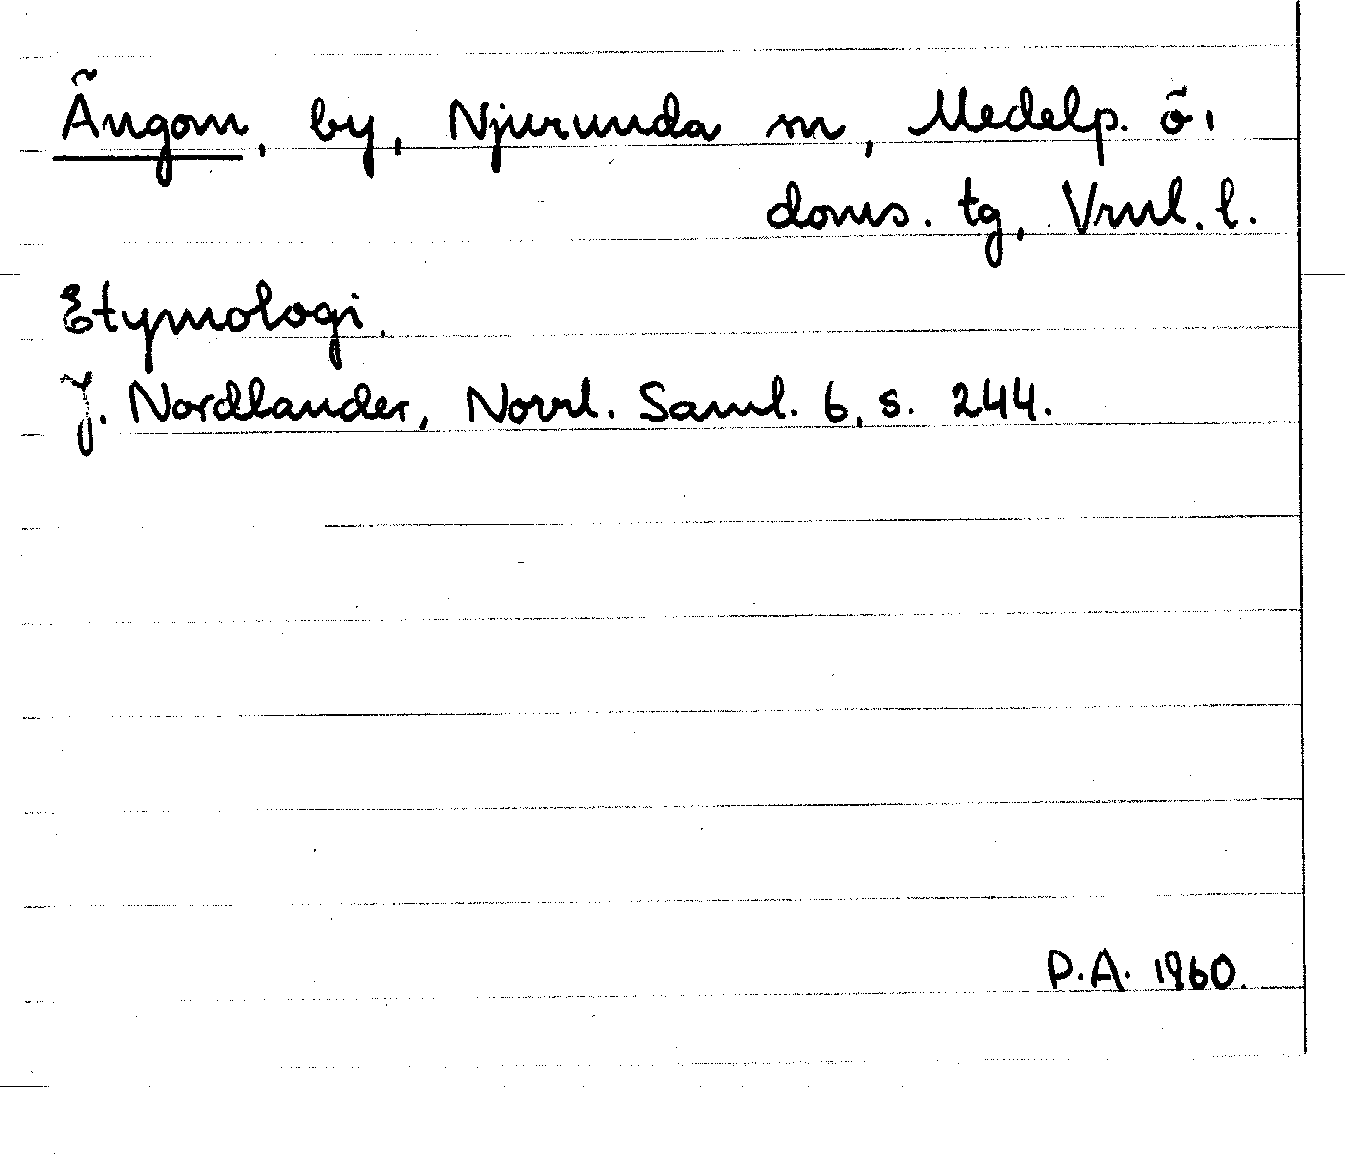 Ängom, by, Njurunda sn, Medelp. ö.
doms. tg, Vrnl. l.
Etymologi.
J. Nordlander, Norrl. Saml. 6, s. 244.
P.A. 1960.